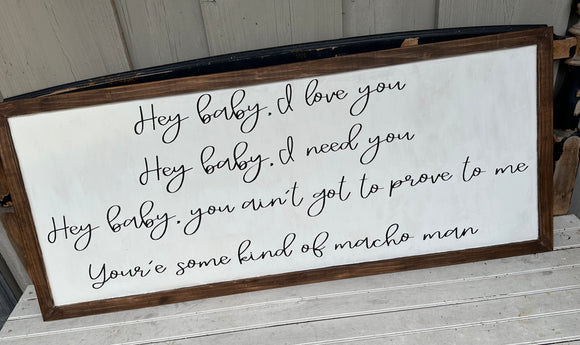 Hey baby, I love you
Hey baby, I need you
Hey baby, you ain't got to prove to me
Your'e some kind of macho man